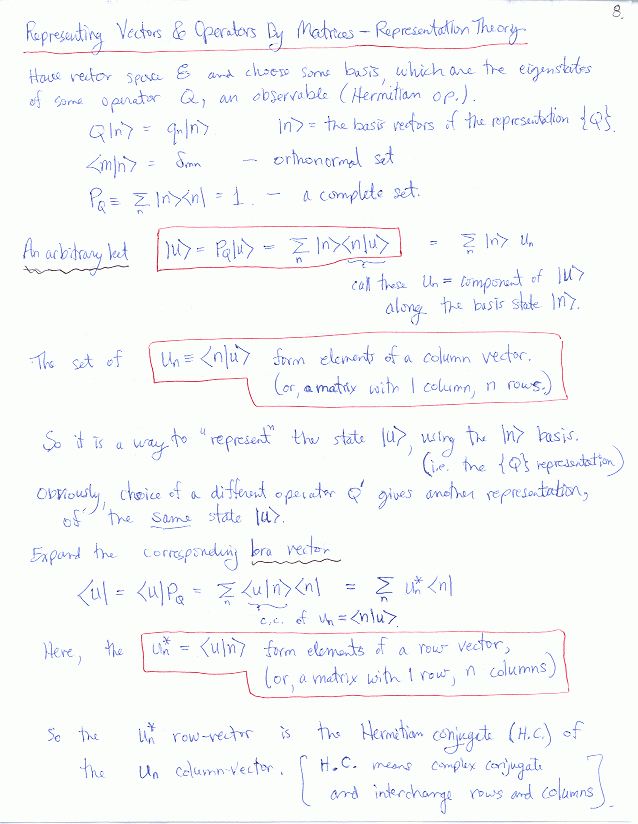 8.
Representing Vectors & Operators By Matrices - Representation Theory.
Have vector space ℰ and choose some basis, which are the eigenstates
of some operator Q, an observable (Hermitian op.).
Q|n> = qn|n>    |n> = the basis vectors of the representation {Q}.
<m|n> = δmn — orthonormal set
PQ ≡ Σn |n><n| = 1. — a complete set.
An arbitrary ket |u> = PQ|u> = Σn |n><n|u> = Σn |n> un
call these un = component of |u>
along the basis state |n>.
The set of un ≡ <n|u> form elements of a column vector.
(or, a matrix with 1 column, n rows.)
So it is a way to "represent" the state |u>, using the |n> basis.
(i.e. the {Q} representation)
Obviously, choice of a different operator Q' gives another representation,
of the same state |u>.
Expand the corresponding bra vector
<u| = <u|PQ = Σn <u|n><n| = Σn un* <n|
c.c. of un = <n|u>.
Here, the un* = <u|n> form elements of a row vector,
(or, a matrix with 1 row, n columns)
So the un* row-vector is the Hermitian conjugate (H.C.) of
the un column-vector. [H.C. means complex conjugate
and interchange rows and columns].